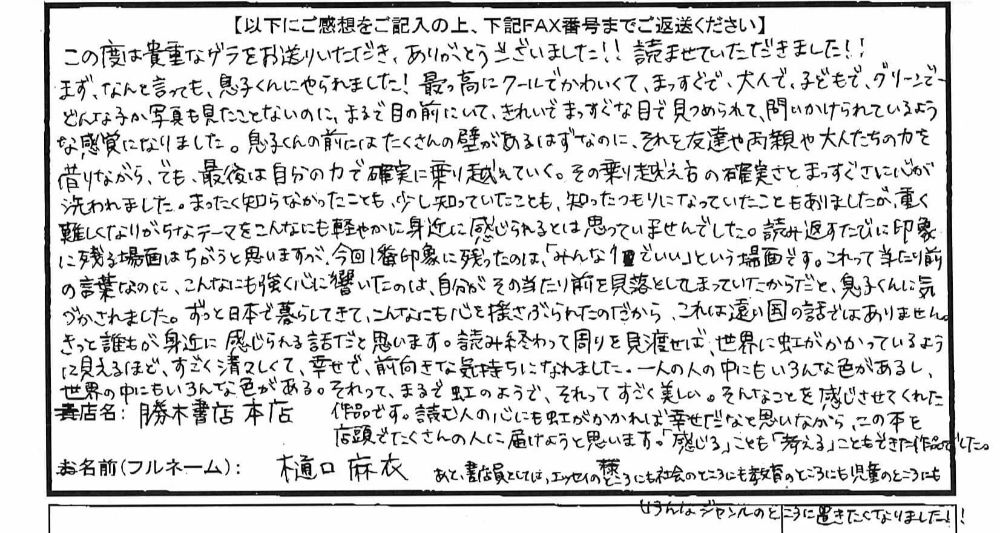 【以下にご感想をご記入の上、下記FAX番号までご返送ください】
この度は貴重なゲラをお送りいただき、ありがとうございました!! 読ませていただきました!!
まず、なんと言っても、息子くんにやられました! 最っ高にクールでかわいくて、まっすぐで、大人で、子どもで、グリーンで…
どんな子か写真も見たことないのに、まるで目の前にいて、きれいでまっすぐな目で見つめられて、問いかけられているよう
な感覚になりました。息子くんの前にはたくさんの壁があるはずなのに、それを友達や両親や大人たちの力を
借りながら、でも、最後は自分の力で確実に乗り越えていく。その乗り越え方の確実さとまっすぐさに心が
洗われました。まったく知らなかったことも、少し知っていたことも、知ったつもりになっていたこともありましたが、重く
難しくなりがちなテーマをこんなにも軽やかに身近に感じられるとは思っていませんでした。読み返すたびに印象
に残る場面はちがうと思いますが、今回1番印象に残ったのは、「みんな1個でいい」という場面です。これって当たり前
の言葉なのに、こんなにも強く心に響いたのは、自分がその当たり前を見落としてしまっていたからだと、息子くんに気
づかされました。ずっと日本で暮らしてきて、こんなにも心を揺さぶられたのだから、これは遠い国の話ではありません。
きっと誰もが身近に感じられる話だと思います。読み終わって周りを見渡せば、世界に虹がかかっているよう
に見えるほど、すごく清々しくて、幸せで、前向きな気持ちになれました。一人の人の中にもいろんな色があるし、
世界の中にもいろんな色がある。それって、まるで虹のようで、それってすごく美しい。そんなことを感じさせてくれた
貴店名: 勝木書店 本店 作品です。読む人の心にも虹がかかれば幸せだなと思いながら、この本を
店頭でたくさんの人に届けようと思います。「感じる」ことも「考える」こともできた作品でした。
お名前(フルネーム): 樋口 麻衣 様 あと、書店員としては、エッセイのところにも社会のところにも教育のところにも児童のところにも
いろんなジャンルのところに置きたくなりました!!